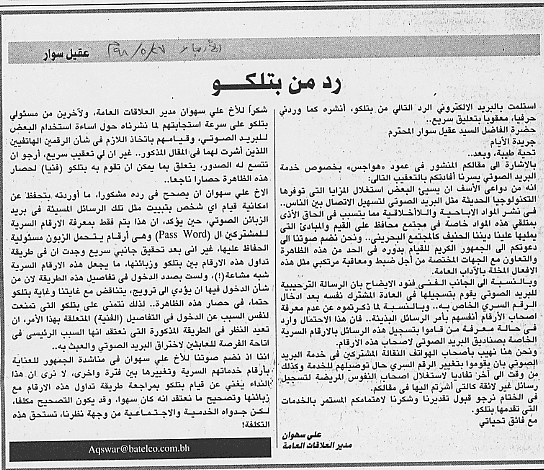 الأيام ٩٨/٥/٢٧
عقيل سوار
رد من بتلكو
استلمت بالبريد الالكتروني الرد التالي من بتلكو، أنشره كما وردني
حرفيا، معقوبا بتعليق سريع..
حضرة الفاضل السيد عقيل سوار المحترم
جريدة الأيام
تحية طيبة، وبعد..
بالإشارة الى مقالكم المنشور في عمود «هواجس» بخصوص خدمة
البريد الصوتي يسرنا أفادتكم بالتعقيب التالي:
انه من دواعي الأسف ان يسيئ البعض استغلال المزايا التي توفرها
التكنولوجيا الحديثة مثل البريد الصوتي لتسهيل الاتصال بين الناس..
في نشر المواد الاباحية واللاأخلاقية مما يتسبب في الحاق الأذى
بمتلقي هذه المواد خاصة في مجتمع محافظ على القيم والمبادئ التي
يمليها علينا ديننا الحنيف كالمجتمع البحريني.. ونحن نضم صوتنا الى
دعوتكم الى الجمهور الكريم للقيام بدوره في الحد من هذه الظاهرة
والتعاون مع الجهات المختصة من أجل ضبط ومعاقبة مرتكبي مثل هذه
الافعال المخلة بالآداب العامة.
وبالنسبة الى الجانب الفني فنود الايضاح بان الرسالة الترحيبية
للبريد الصوتي يقوم بتسجيلها في العادة المشترك نفسه بعد ادخال
الرقم السري الخاص به.. وبالنسبة لما ذكرتموه عن عدم معرفة
اصحاب الأرقام أنفسهم بأمر الرسائل البذيئة.. فان هذا الاحتمال وارد
في حالة معرفة من قاموا بتسجيل هذه الرسائل بالارقام السرية
الخاصة بصناديق البريد الصوتي لاصحاب هذه الارقام.
ونحن هنا نهيب بأصحاب الهواتف النقالة المشتركين في خدمة البريد
الصوتي بان يقوموا بتغيير الرقم السري حال توصيلهم للخدمة وكذلك
من وقت الى آخر تفاديا لاستغلال اصحاب النفوس المريضة لتسجيل
رسائل غير لائقة كالتي أشرتم اليها في مقالكم.
في الختام نرجو قبول تقديرنا وشكرنا لاهتمامكم المستمر بالخدمات
التي تقدمها بتلكو.
مع فائق تحياتي
علي سهوان
مدير العلاقات العامة
شكراً للأخ علي سهوان مدير العلاقات العامة، ولآخرين من مسئولي
بتلكو على سرعة استجابتهم لما نشرناه حول اساءة استخدام البعض
للبريد الصوتي، وقيامهم باتخاذ اللازم في شأن الرقمين الهاتفيين
اللذين أشرت لهما في المقال المذكور.. غير ان لي تعقيب سريع، أرجو ان
تتسع له الصدور، يتعلق بما يمكن ان تقوم به بتلكو (فنيا) لحصار
هذه الظاهرة حصارا ناجعا.
الاخ علي سهوان يصحح في رده مشكورا، ما أوردته بتحفظ عن
امكانية قيام اي شخص بتثبيت مثل تلك الرسائل المسيئة في بريد
الزبائن الصوتي، حين يؤكد، ان هذا يتم فقط بمعرفة الارقام السرية
للمشتركين ال (Pass Word) وهي أرقام يتحمل الزبون مسئولية
الحفاظ عليها، غير اني بعد تحقيق جانبي سريع وجدت ان في طريقة
تداول هذه الارقام بين بتلكو وزبائنها، ما يجعل هذه الارقام السرية
شبه مشاعة(!)، ولست بصدد الدخول في تفاصيل هذه الطريقة لان من
شأن الدخول فيها ان يؤدي الى ترويج، يتناقض مع غايتنا وغاية بتلكو
حتما، في حصار هذه الظاهرة.. لذلك نتمنى على بتلكو التي تمتنع
لنفس السبب عن الدخول في التفاصيل (الفنية) المتعلقة بهذا الأمر، ان
تعيد النظر في الطريقة المذكورة التي نعتقد انها السبب الرئيسي في
اتاحة الفرصة للعابثين لاختراق البريد الصوتي والعبث به.
اننا اذ نضم صوتنا للأخ علي سهوان في مناشدة الجمهور للعناية
بأرقام خدماتهم السرية وتغييرها بين فترة واخرى، لا نرى ان هذا
النداء يغني عن قيام بتلكو بمراجعة طريقة تداول هذه الارقام مع
زبائنها وتصحيح ما نعتقد انه كان سهوا، وقد يكون التصحيح مكلفا،
لكن جدواه الخدمية والاجتماعية من وجهة نظرنا، تستحق هذه
التكلفة!
Aqswar@batelco.com.bh